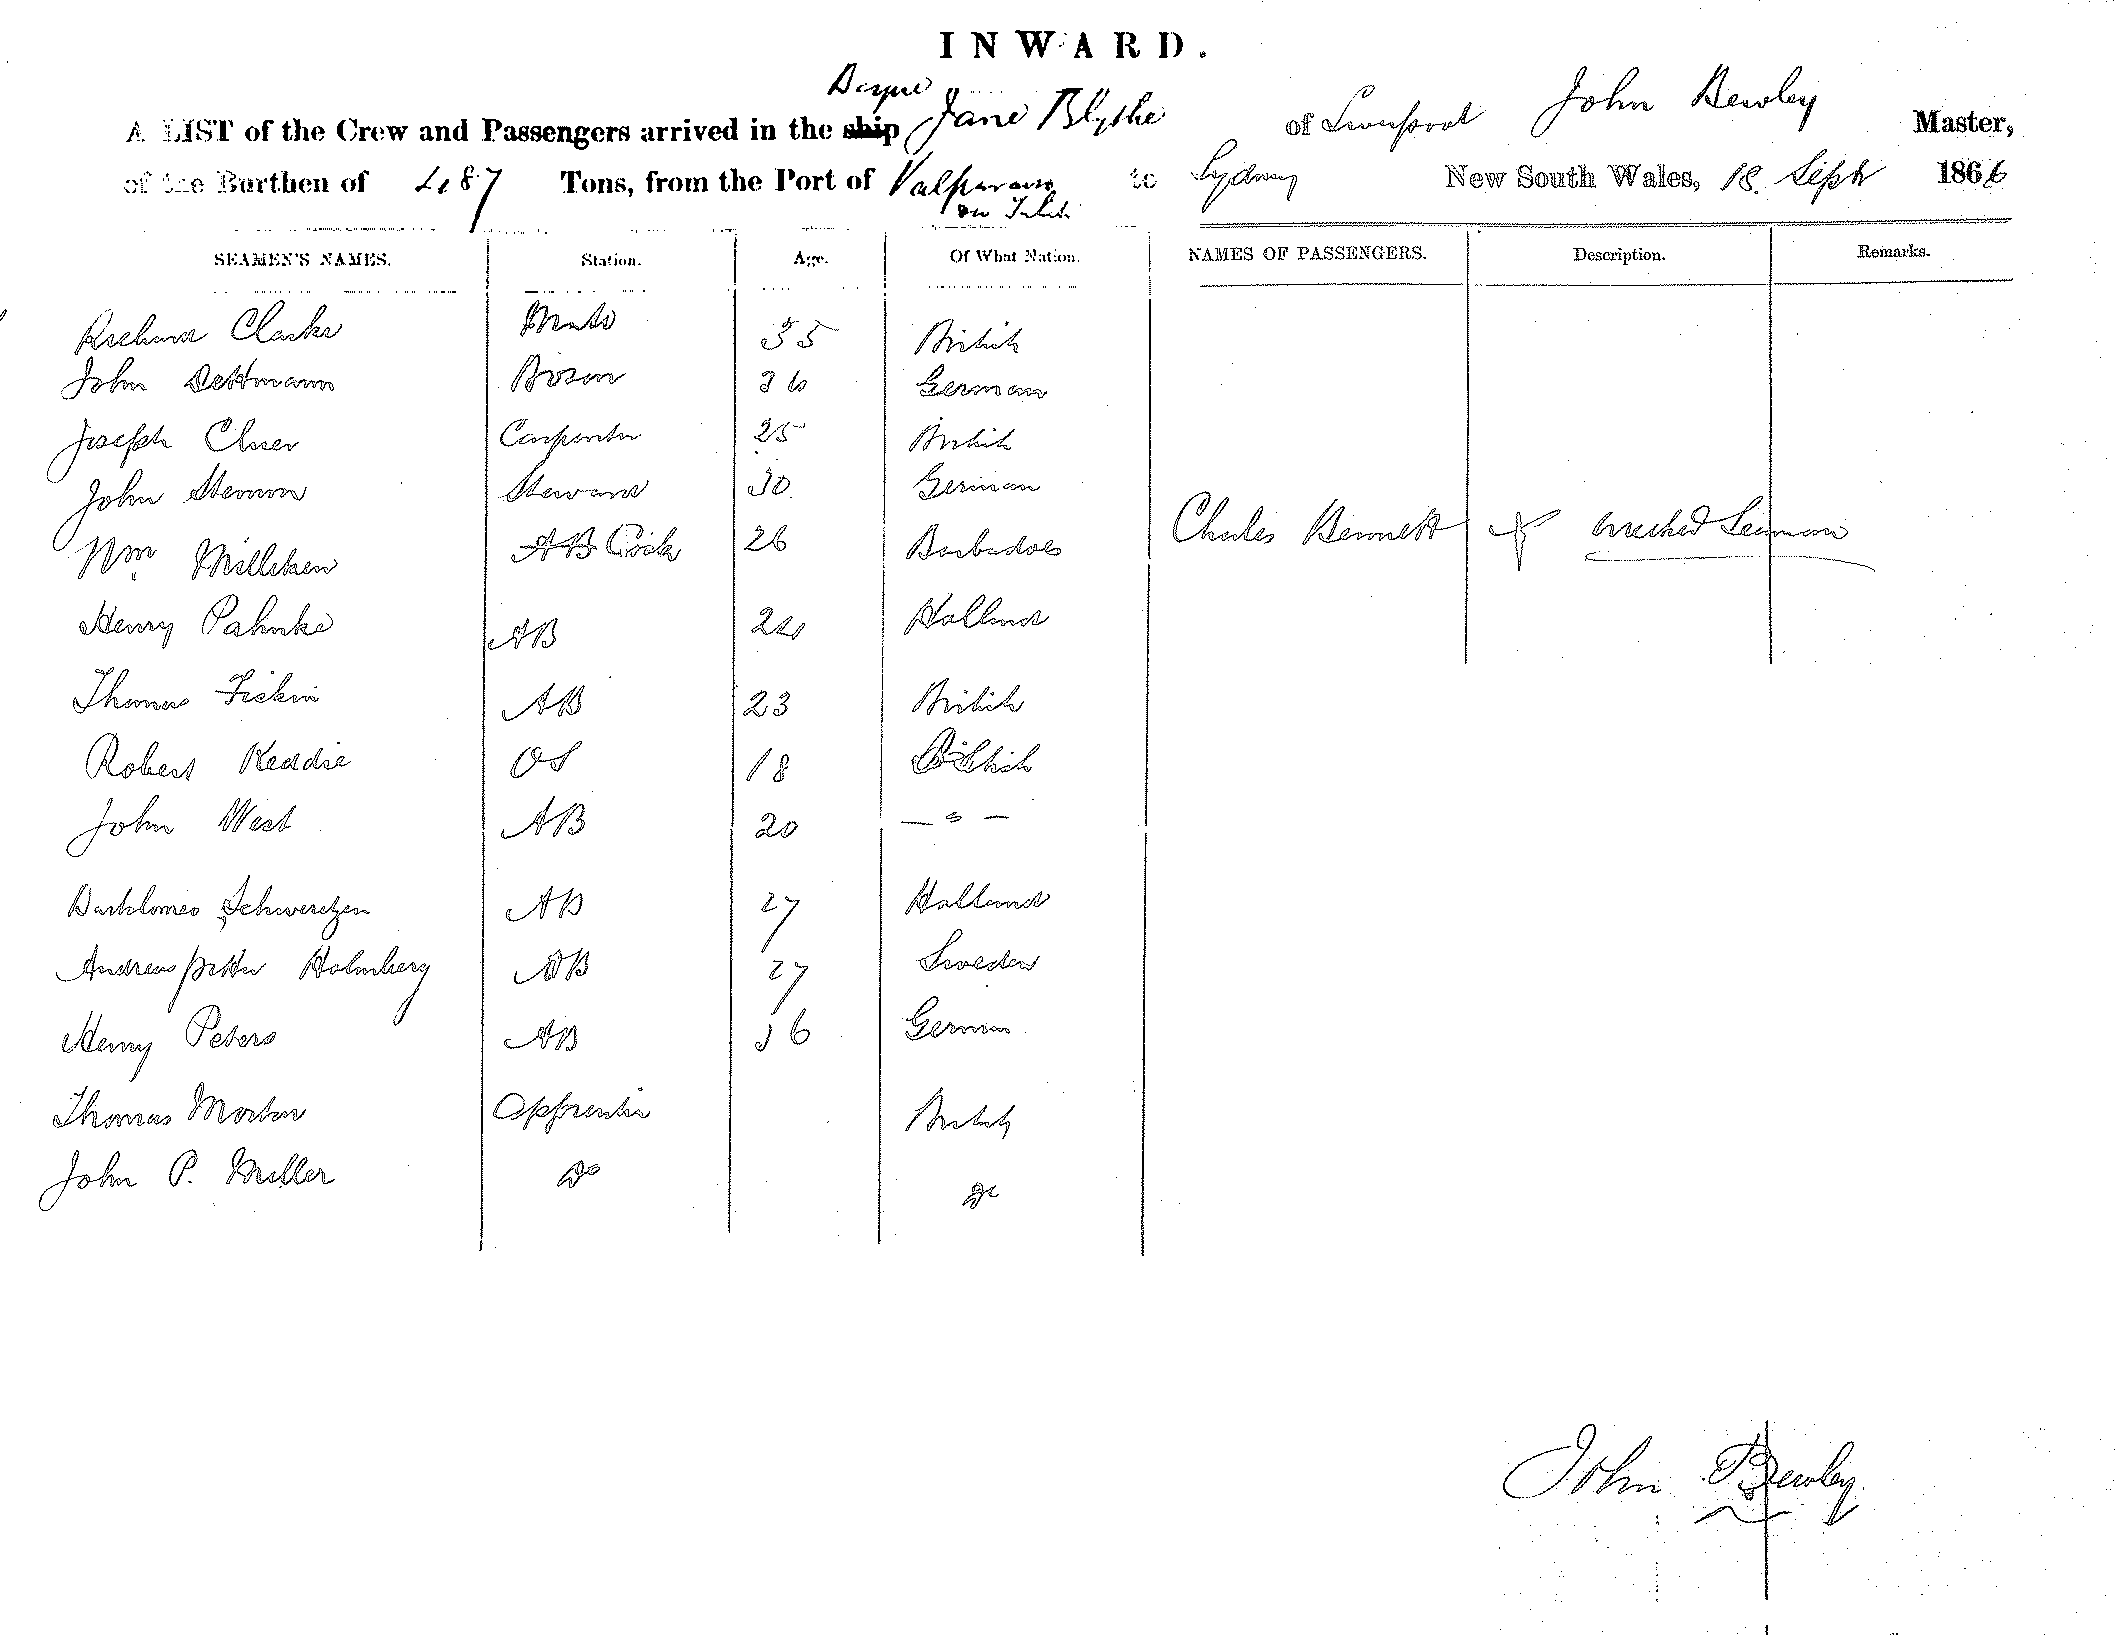 INWARD.
Barque
A LIST of the Crew and Passengers arrived in the ship Jane Blythe of Liverpool John Bewley Master,
of the Burthen of 487 Tons, from the Port of Valparaiso to Sydney New South Wales, 18 Sept 1866
SEAMEN'S NAMES. Station. Age. Of What Nation. NAMES OF PASSENGERS. Description. Remarks.
Richard Clarke Mate 35 British
John Dettmann Bosun 36 German
Joseph Carpenter 25 British
John Steward 30 German
Wm Milliken AB Cook 26 Barbadoes Charles Bennett wrecked Seaman
Henry Pahnke AB 24 Holland
Thomas AB 23 British
Robert Keddie OS 18 British
John West AB 20 — " —
Bartolomeo AB 27 Holland
Andreas Holmberg AB 27 Sweden
Henry Peters AB 36 German
Thomas Morton Apprentice British
John P. Miller Do Do
John Bewley